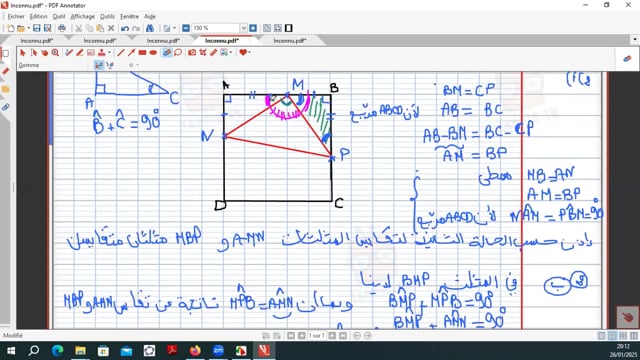 Inconnu.pdf* - PDF Annotator
Fichier Edition Affichage Outils Fenêtre Aide
150 %
Inconnu.pdf* Inconnu.pdf* Inconnu.pdf* Inconnu.pdf* Inconnu.pdf*
Gomme
A C
B̂ + Ĉ = 90°
A M B
N P
D C
BM = CP
لأن ABCD مربع
AB = BC
AB - BM = BC - CP
AM = BP
معطى MB = AN
AM = BP
لأن ABCD مربع NÂM = PB̂N = 90°
إذن حسب الحالة الثانية لتقايس المثلثات AMN و MBP مثلثان متقايسان
ب) في المثلث BMP لدينا
BM̂P + MP̂B = 90°
وبما أن MP̂B = AM̂N ناتجة عن تقايس AMN و MBP
BM̂P + AM̂N = 90°
Modifié
1 sur 1
20:12
26/01/2025